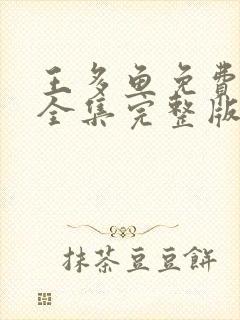 王多鱼免費
全集完整版
抹茶豆豆餅